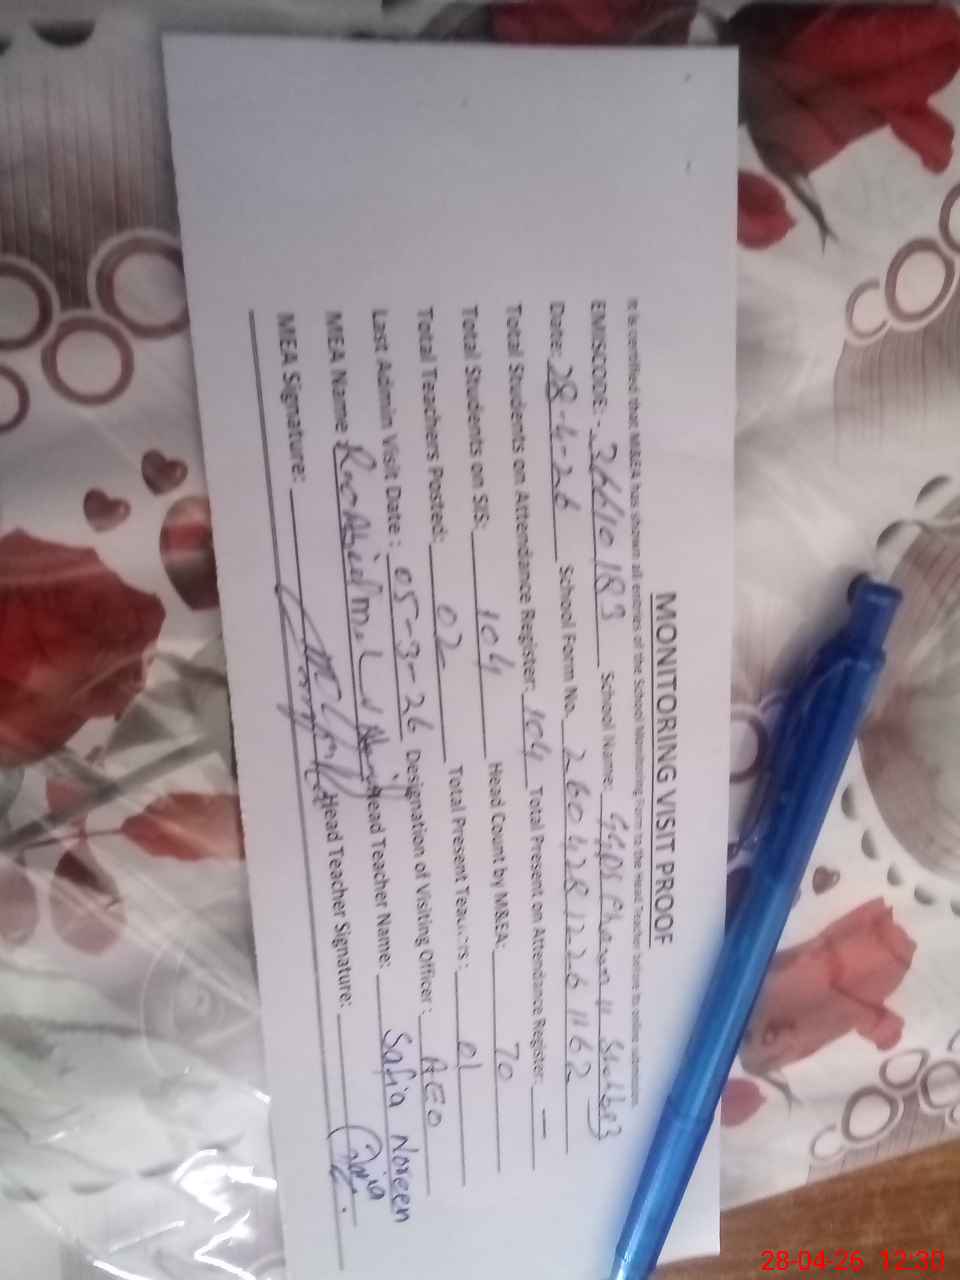 MONITORING VISIT PROOF
It is certified that M&EA has shown all entries of the School Monitoring Form to the Head Teacher before its online submission.
EMISCODE:- 36610183 School Name: GGPS
Date: 28-4-26 School Form No. 26042812261162
Total Students on Attendance Register: 104 Total Present on Attendance Register: —
Total Students on SIS: 104 Head Count by M&EA: 70
Total Teachers Posted: 02 Total Present Teachers: 01
Last Admin Visit Date : 05-3-26 Designation of Visiting Officer : AEO
MEA Name Head Teacher Name: Safia Noreen
MEA Signature: Head Teacher Signature: Safia
28-04-26 12:30